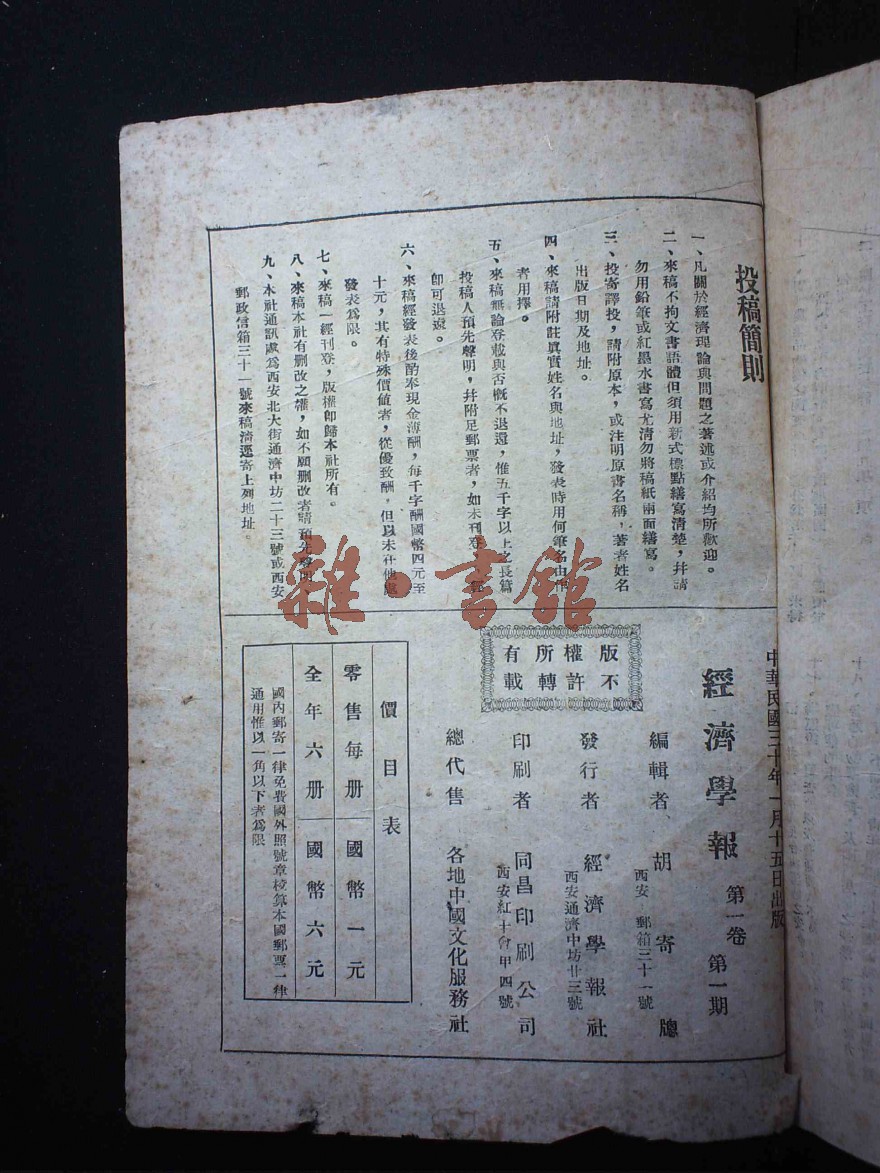 投稿簡則
一、凡關於經濟理論與問題之著述或介紹均所歡迎。
二、來稿不拘文書語體但須用新式標點繕寫清楚，幷請
勿用鉛筆或紅墨水書寫尤請勿將稿紙兩面繕寫。
三、投寄譯投，請附原本，或注明原書名稱，著者姓名
出版日期及地址。
四、來稿請附註眞實姓名與地址，發表時用何筆名由作
者用擇。
五、來稿無論登載與否槪不退還，惟五千字以上之長篇
投稿人預先聲明，幷附足郵票者，如未刊登，
卽可退還。
六、來稿經發表後酌奉現金薄酬，每千字酬國幣四元至
十元，其有特殊價値者，從優致酬，但以未在他處
發表爲限。
七、來稿一經刊登，版權卽歸本社所有。
八、來稿本社有删改之權，如不願删改者請預先聲明
九、本社通訊處爲西安北大街通濟中坊二十三號或西安
郵政信箱三十一號來稿請逕寄上列地址
雜·書館
中華民國三十年一月十五日出版
經濟學報 第一卷 第一期
版權所有
不許轉載
編輯者 胡寄牕
西安 郵箱三十一號
發行者 經濟學報社
西安通濟中坊廿三號
印刷者 同昌印刷公司
西安紅十會甲四號
總代售 各地中國文化服務社
價目表
零售每册 國幣一元
全年六册 國幣六元
國內郵寄一律免費國外照號章核算本國郵票一律
通用惟以一角以下者爲限